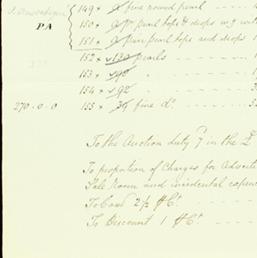 149 × 2 fine round pearl ... 4
PA
150 × pearl tops & drops
151 × 2 pair pearl tops and drops 1
152 × 130 pearls
153 × 90
154 × 92
270.0.0 155 × 30 fine do
To the Auction duty 7d in the £
To proportion of Charges for Adverti
Sale Room and incidental expen
To Cash 2½ ₱Ct
To Discount 1 ₱Ct